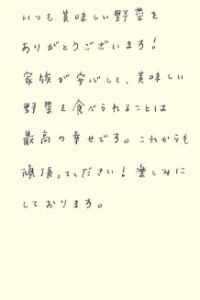 いつも美味しい野菜を
ありがとうございます!
家族が安心して、美味しい
野菜を食べられることは
最高の幸せです。これからも
頑張ってください!楽しみに
しております。